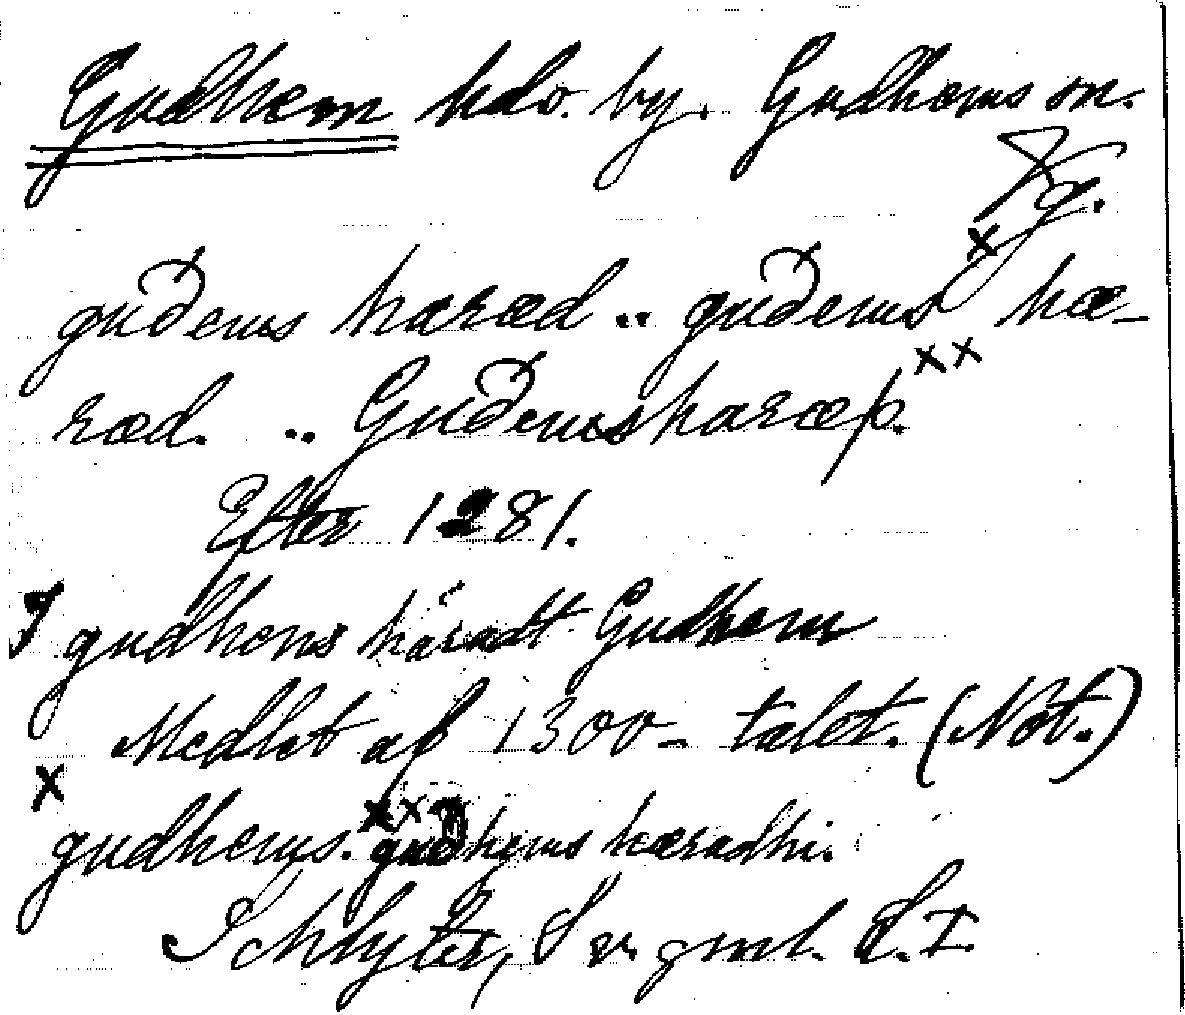 Gudhem hdo. by. Gudhems sn.
Vg.
guðems hæræd .. guðems x hæ-
ræd. .. Guðemshæræþ. xx
Efter 1281.
I gudhens häradt Gudhem
Medlet af 1300-talet. (Not.)
x gudhems. xx gudhems hæradhi.
Schlyter, Sv. gml. L. I